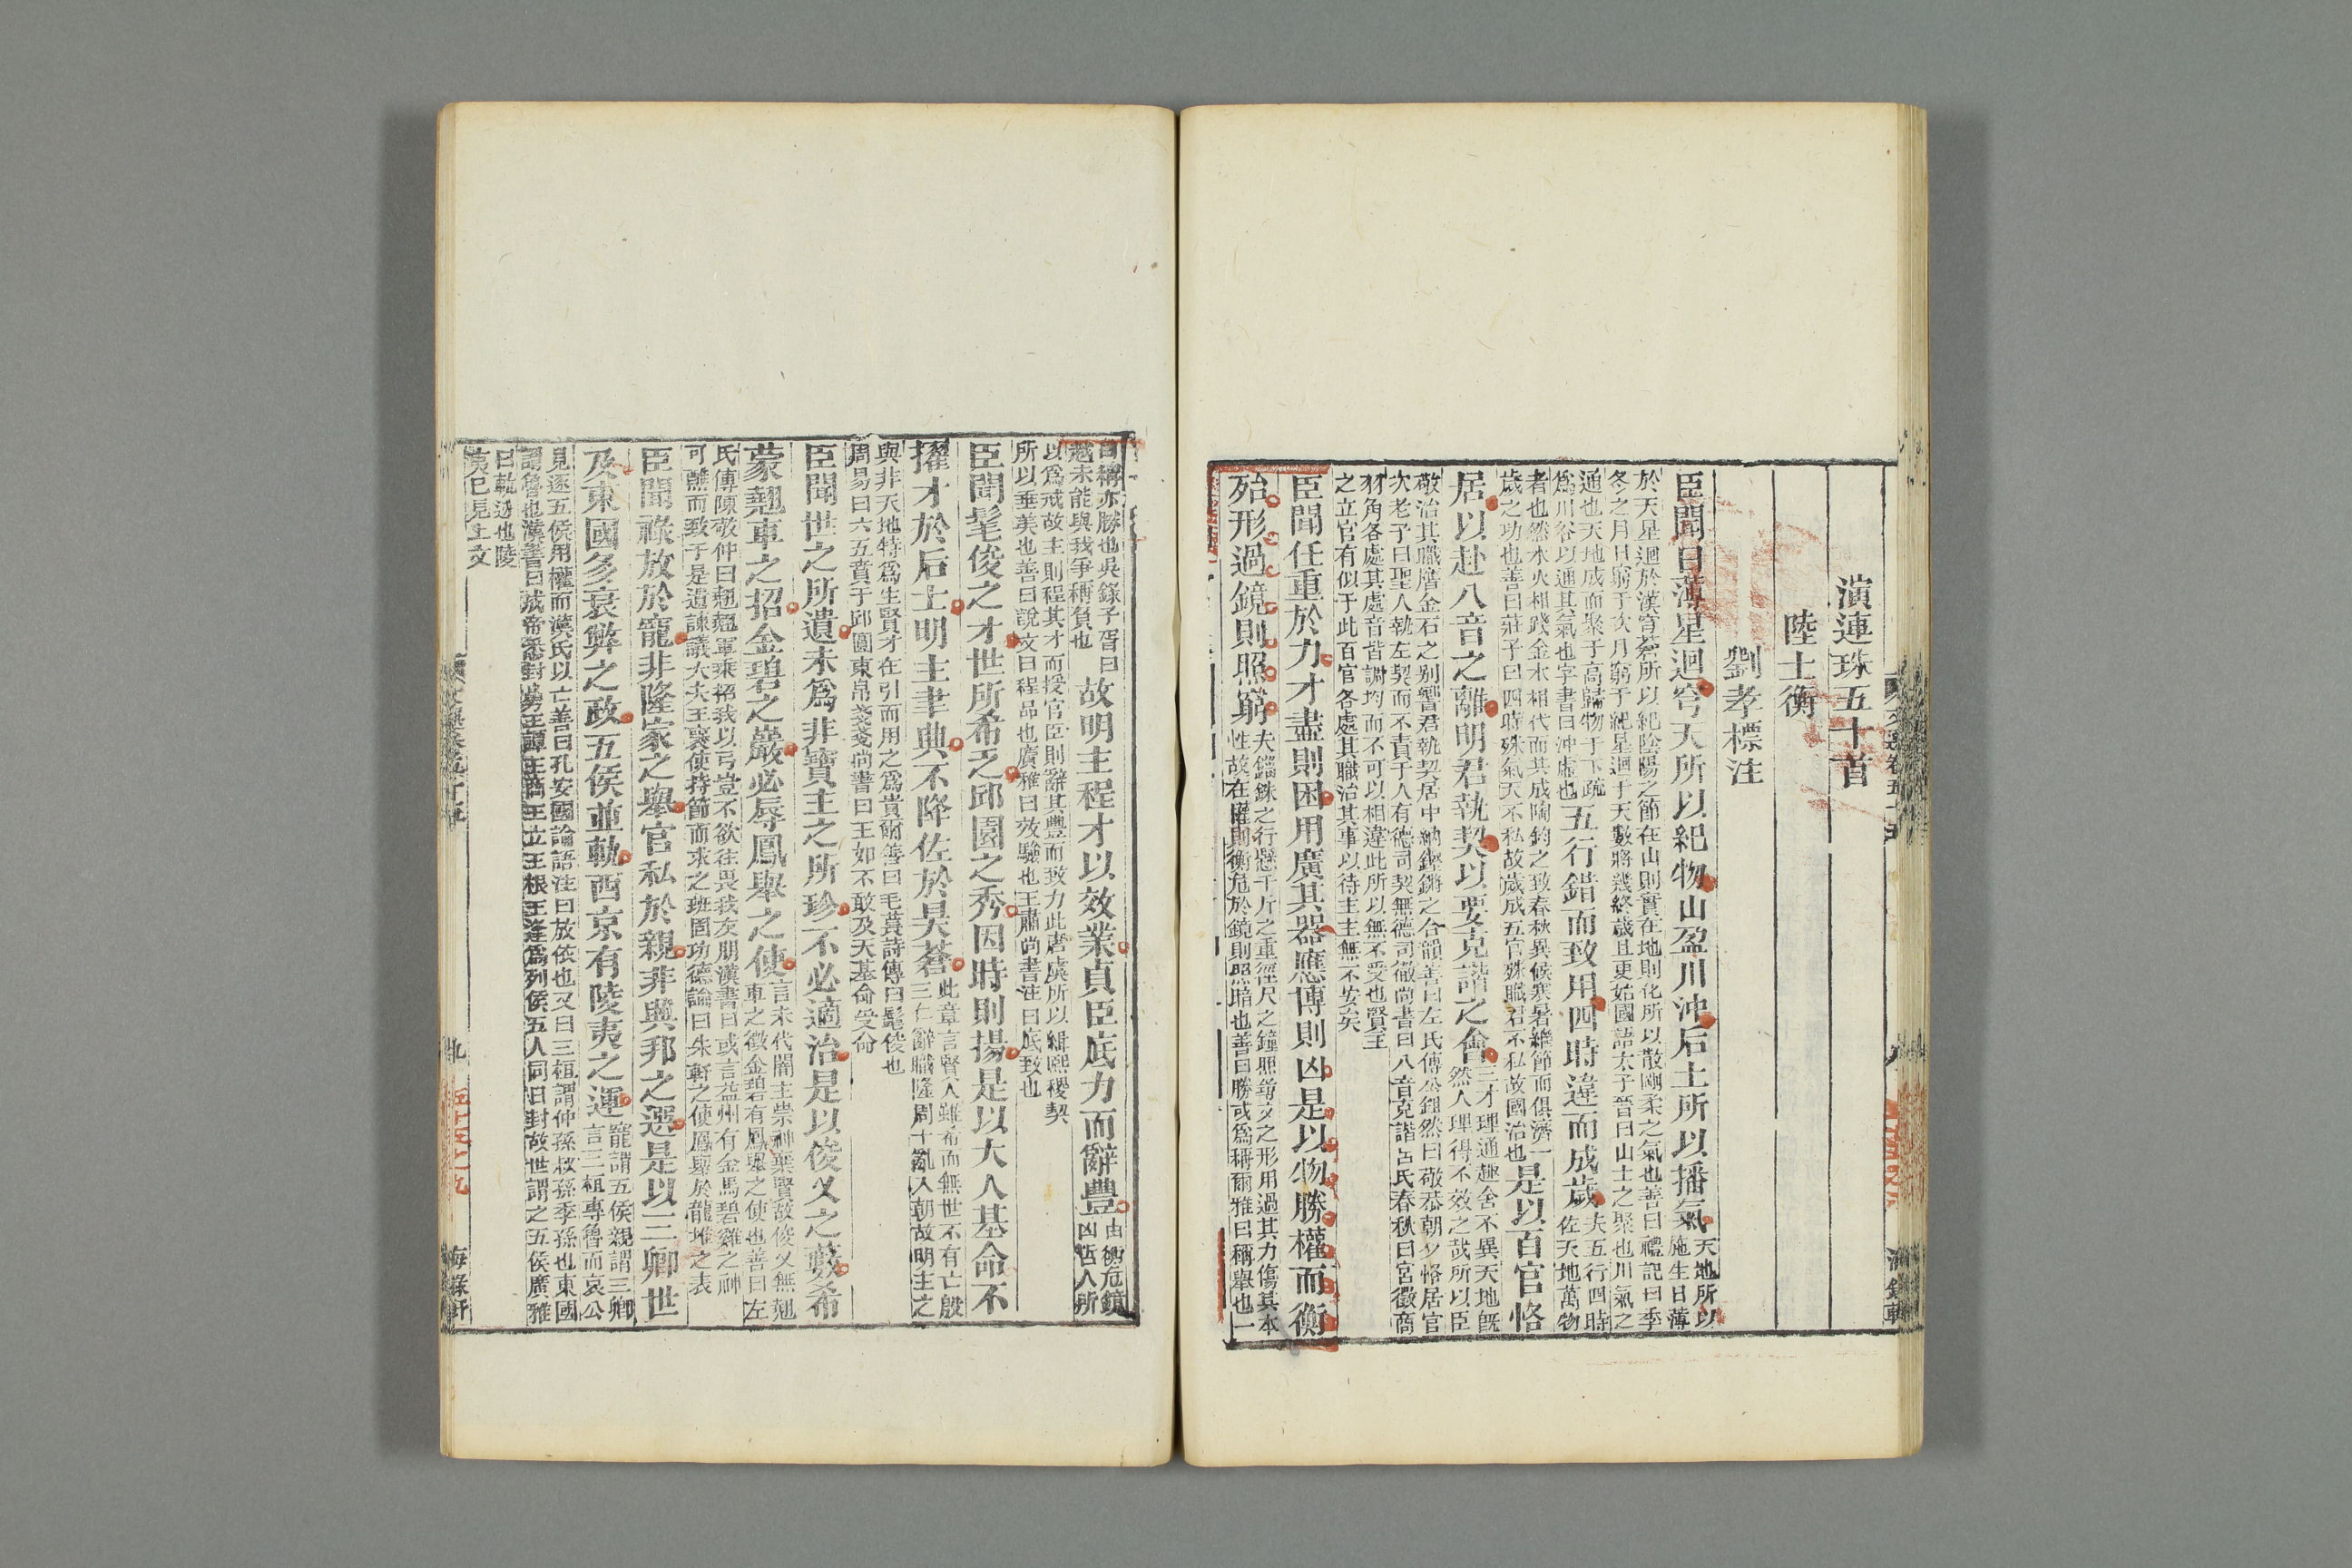 演連珠五十首
陸士衡
劉孝標注
臣聞日薄星迴穹天所以紀物山盈川沖后土所以播氣天地所以施生日薄
於天星迴於漢穹蒼所以紀陰陽之節在山則實在地則化所以散剛柔之氣也善曰禮記曰季
冬之月日窮于次月窮于紀星迴于天數將幾終歲且更始國語太子晉曰山土之聚也川氣之
通也天地成而聚于高歸物于下疏
爲川谷以通其氣也字書曰沖虛也五行錯而致用四時違而成歲夫五行四時佐天地萬物
者也然水火相踐金木相代而共成陶鈞之致春秋異候寒暑繼節而俱濟一
歲之功也善曰莊子曰四時殊氣天不私故歲成五官殊職君不私故國治也是以百官恪
居以赴八音之離明君執契以要克諧之會三才理通趣舍不異天地旣然人理得不效之哉所以臣
敬治其職膺金石之別響君執契居中納鏗鏘之合韻善曰左氏傳公鉏然曰敬恭朝夕恪居官
次老子曰聖人執左契而不責于人有德司契無德司徹尚書曰八音克諧呂氏春秋曰宮徵商
羽角各處其處音皆調均而不可以相違此所以無不受也賢主
之立官有似于此百官各處其職治其事以待主主無不安矣
臣聞任重於力才盡則困用廣其器應博則凶是以物勝權而衡
殆形過鏡則照窮夫錙銖之行懸千斤之重徑尺之鐘照尋丈之形用過其力傷其本
性故在權則衡危於鏡則照暗也善曰勝或爲稱爾雅曰稱舉也一
曰稱亦勝也吳錄子胥曰
越未能與我爭稱負也故明主程才以效業貞臣底力而辭豐由衡危鏡凶哲人所
以爲戒故主則程其才而授官臣則辭其豐而致力此唐虞所以緝熙稷契
所以垂美也善曰說文曰程品也廣雅曰效驗也王肅尚書注曰底致也
臣聞髦俊之才世所希乏邱園之秀因時則揚是以大人基命不
擢才於后土明主聿興不降佐於昊蒼此章言賢人雖希而無世不有亡殷三仁辭職隆周十亂入朝故明主之
與非天地特爲生賢才在引而用之爲貴爾善曰毛萇詩傳曰髦俊也
周易曰六五賁于邱園束帛戔戔尚書曰王如不敢及天基命受命
臣聞世之所遺未爲非寶主之所珍不必適治是以俊乂之藪希
蒙翹車之招金碧之巖必辱鳳舉之使言末代闇主崇神棄賢故俊乂無翹車之徵金碧有鳳舉之使也善曰左
氏傳陳敬仲曰翹翹車乘招我以弓豈不欲往畏我友朋漢書曰或言益州有金馬碧雞之神
可醮而致于是遣諫議大夫王襃使持節而求之班固功德論曰朱軒之使鳳舉於龍堆之表
臣聞祿放於寵非隆家之舉官私於親非興邦之選是以三卿世
及東國多衰弊之政五侯並軌西京有陵夷之運寵謂五侯親謂三卿言三桓專魯而哀公
見逐五侯用權而漢氏以亡善曰孔安國論語注曰放依也又曰三桓謂仲孫叔孫季孫也東國
謂魯也漢書曰成帝悉封舅王譚王商王立王根王逢爲列侯五人同日封故世謂之五侯廣雅
曰軌迹也陵
夷已見上文
九
海錄軒